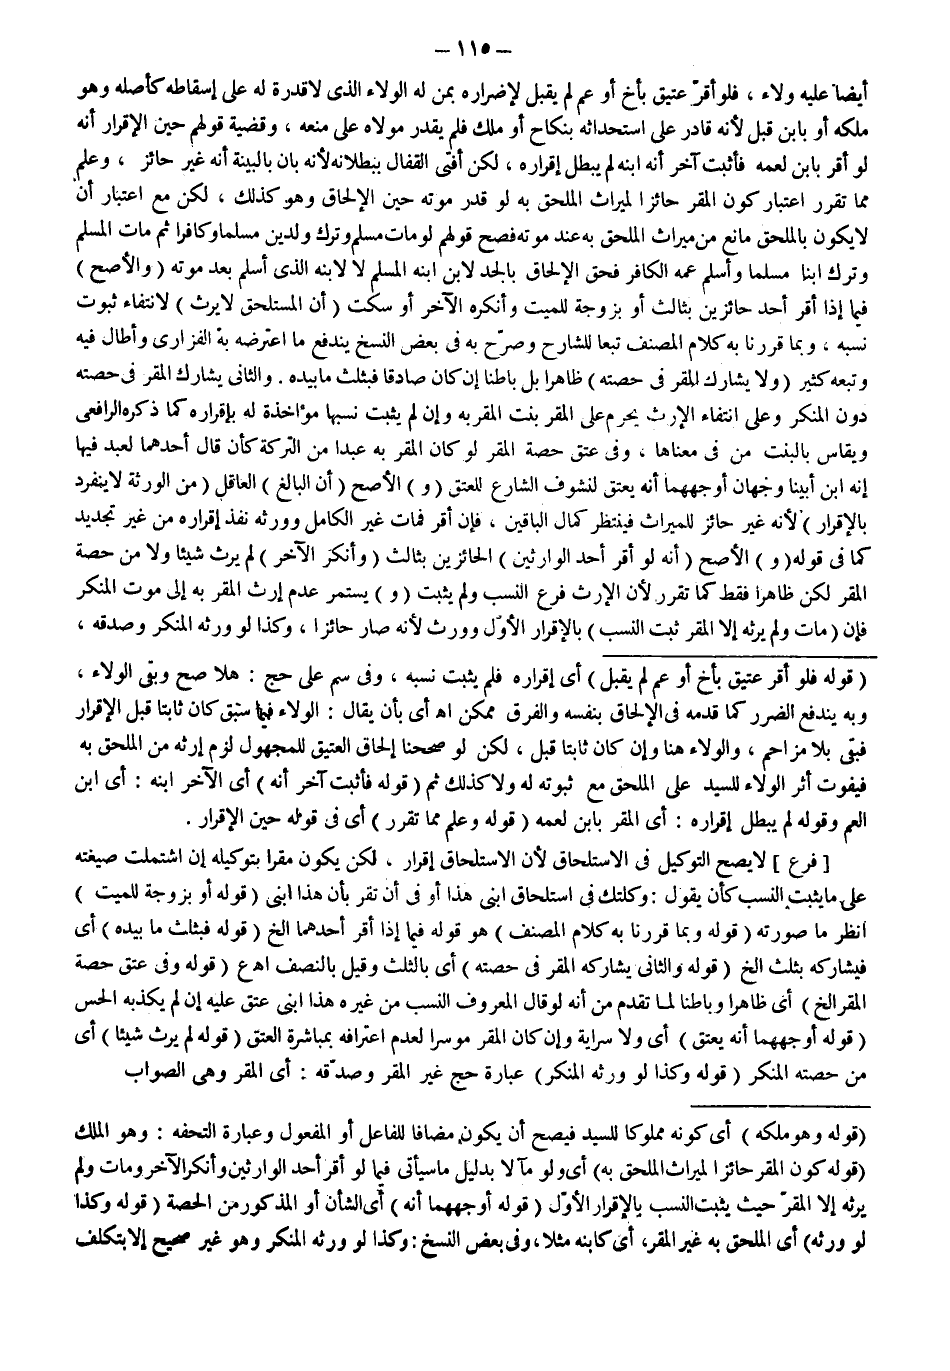 — ١١٥ —
أيضا عليه ولاء ، فلو أقرّ عتيق بأخ أو عم لم يقبل لإضراره بمن له الولاء الذى لا قدرة له على إسقاطه كأصله وهو
ملكه أو بابن قبل لأنه قادر على استحداثه بنكاح أو ملك فلم يقدر مولاه على منعه ، وقضية قولهم حين الإقرار أنه
لو أقر بابن لعمه فأثبت آخر أنه ابنه لم يبطل إقراره ، لكن أفتى القفال ببطلانه لأنه بان بالبينة أنه غير حائز ، وعلم
مما تقرر اعتبار كون المقر حائزا لميراث الملحق به لو قدر موته حين الإلحاق وهو كذلك ، لكن مع اعتبار أن
لا يكون بالملحق مانع من ميراث الملحق به عند موته فصح قولهم لو مات مسلم وترك ولدين مسلما وكافرا ثم مات المسلم
وترك ابنا مسلما وأسلم عمه الكافر فحق الإلحاق بالجد لابن ابنه المسلم لا لابنه الذى أسلم بعد موته ( والأصح )
فيما إذا أقر أحد حائزين بثالث أو بزوجة للميت وأنكره الآخر أو سكت ( أن المستلحق لايرث ) لانتفاء ثبوت
نسبه ، وبما قررنا به كلام المصنف تبعا للشارح وصرّح به فى بعض النسخ يندفع ما اعترضه به الفزارى وأطال فيه
وتبعه كثير ( ولا يشارك المقر فى حصته ) ظاهرا بل باطنا إن كان صادقا فبثلث مابيده . والثانى يشارك المقر فى حصته
دون المنكر وعلى انتفاء الإرث يحرم على المقر بنت المقر به وإن لم يثبت نسبها مؤاخذة له بإقراره كما ذكره الرافعى
ويقاس بالبنت من فى معناها ، وفى عتق حصة المقر لو كان المقر به عبدا من التركة كأن قال أحدهما لعبد فيها
إنه ابن أبينا وجهان أوجههما أنه يعتق لتشوف الشارع للعتق ( و ) الأصح ( أن البالغ ) العاقل ( من الورثة لاينفرد
بالإقرار ) لأنه غير حائز للميراث فينتظر كمال الباقين ، فإن أقر فمات غير الكامل وورثه نفذ إقراره من غير تجديد
كما فى قوله ( و ) الأصح ( أنه لو أقر أحد الوارثين ) الحائزين بثالث ( وأنكر الآخر ) لم يرث شيئا ولا من حصة
المقر لكن ظاهرا فقط كما تقرر لأن الإرث فرع النسب ولم يثبت ( و ) يستمر عدم إرث المقر به إلى موت المنكر
فإن ( مات ولم يرثه إلا المقر ثبت النسب ) بالإقرار الأوّل وورث لأنه صار حائزا ، وكذا لو ورثه المنكر وصدقه ،
( قوله فلو أقر عتيق بأخ أو عم لم يقبل ) أى إقراره فلم يثبت نسبه ، وفى سم على حج : هلا صح وبقى الولاء ،
وبه يندفع الضرر كما قدمه فى الإلحاق بنفسه والفرق ممكن اه أى بأن يقال : الولاء فيما سبق كان ثابتا قبل الإقرار
فبقى بلا مزاحم ، والولاء هنا وإن كان ثابتا قبل ، لكن لو صححنا إلحاق العتيق للمجهول لزم إرثه من الملحق به
فيفوت أثر الولاء للسيد على الملحق مع ثبوته له ولا كذلك ثم ( قوله فأثبت آخر أنه ) أى الآخر ابنه : أى ابن
العم وقوله لم يبطل إقراره : أى المقر بابن لعمه ( قوله وعلم مما تقرر ) أى فى قوله حين الإقرار .
[ فرع ] لايصح التوكيل فى الاستلحاق لأن الاستلحاق إقرار ، لكن يكون مقرا بتوكيله إن اشتملت صيغته
على مايثبت النسب كأن يقول : وكلتك فى استلحاق ابنى هذا أو فى أن تقر بأن هذا ابنى ( قوله أو بزوجة للميت )
انظر ما صورته ( قوله وبما قررنا به كلام المصنف ) هو قوله فيما إذا أقر أحدهما الخ ( قوله فبثلث ما بيده ) أى
فيشاركه بثلث الخ ( قوله والثانى يشاركه المقر فى حصته ) أى بالثلث وقيل بالنصف اهع ( قوله وفى عتق حصة
المقر الخ ) أى ظاهرا وباطنا لما تقدم من أنه لو قال المعروف النسب من غيره هذا ابنى عتق عليه إن لم يكذبه الحس
( قوله أوجههما أنه يعتق ) أى ولا سراية وإن كان المقر موسرا لعدم اعترافه بمباشرة العتق ( قوله لم يرث شيئا ) أى
من حصته المنكر ( قوله وكذا لو ورثه المنكر ) عبارة حج غير المقر وصدّقه : أى المقر وهى الصواب
( قوله وهو ملكه ) أى كونه مملوكا للسيد فيصح أن يكون مضافا للفاعل أو المفعول وعبارة التحفه : وهو الملك
( قوله كون المقر حائزا لميراث الملحق به ) أى ولو مآ لا بدليل ماسيأتى فيما لو أقر أحد الوارثين وأنكر الآخر ومات ولم
يرثه إلا المقرّ حيث يثبت النسب بالإقرار الأوّل ( قوله أوجههما أنه ) أى الشأن أو المذكور من الحصة ( قوله وكذا
لو ورثه ) أى الملحق به غير المقر، أى كابنه مثلا، وفى بعض النسخ : وكذا لو ورثه المنكر وهو غير صحيح إلا بتكلف